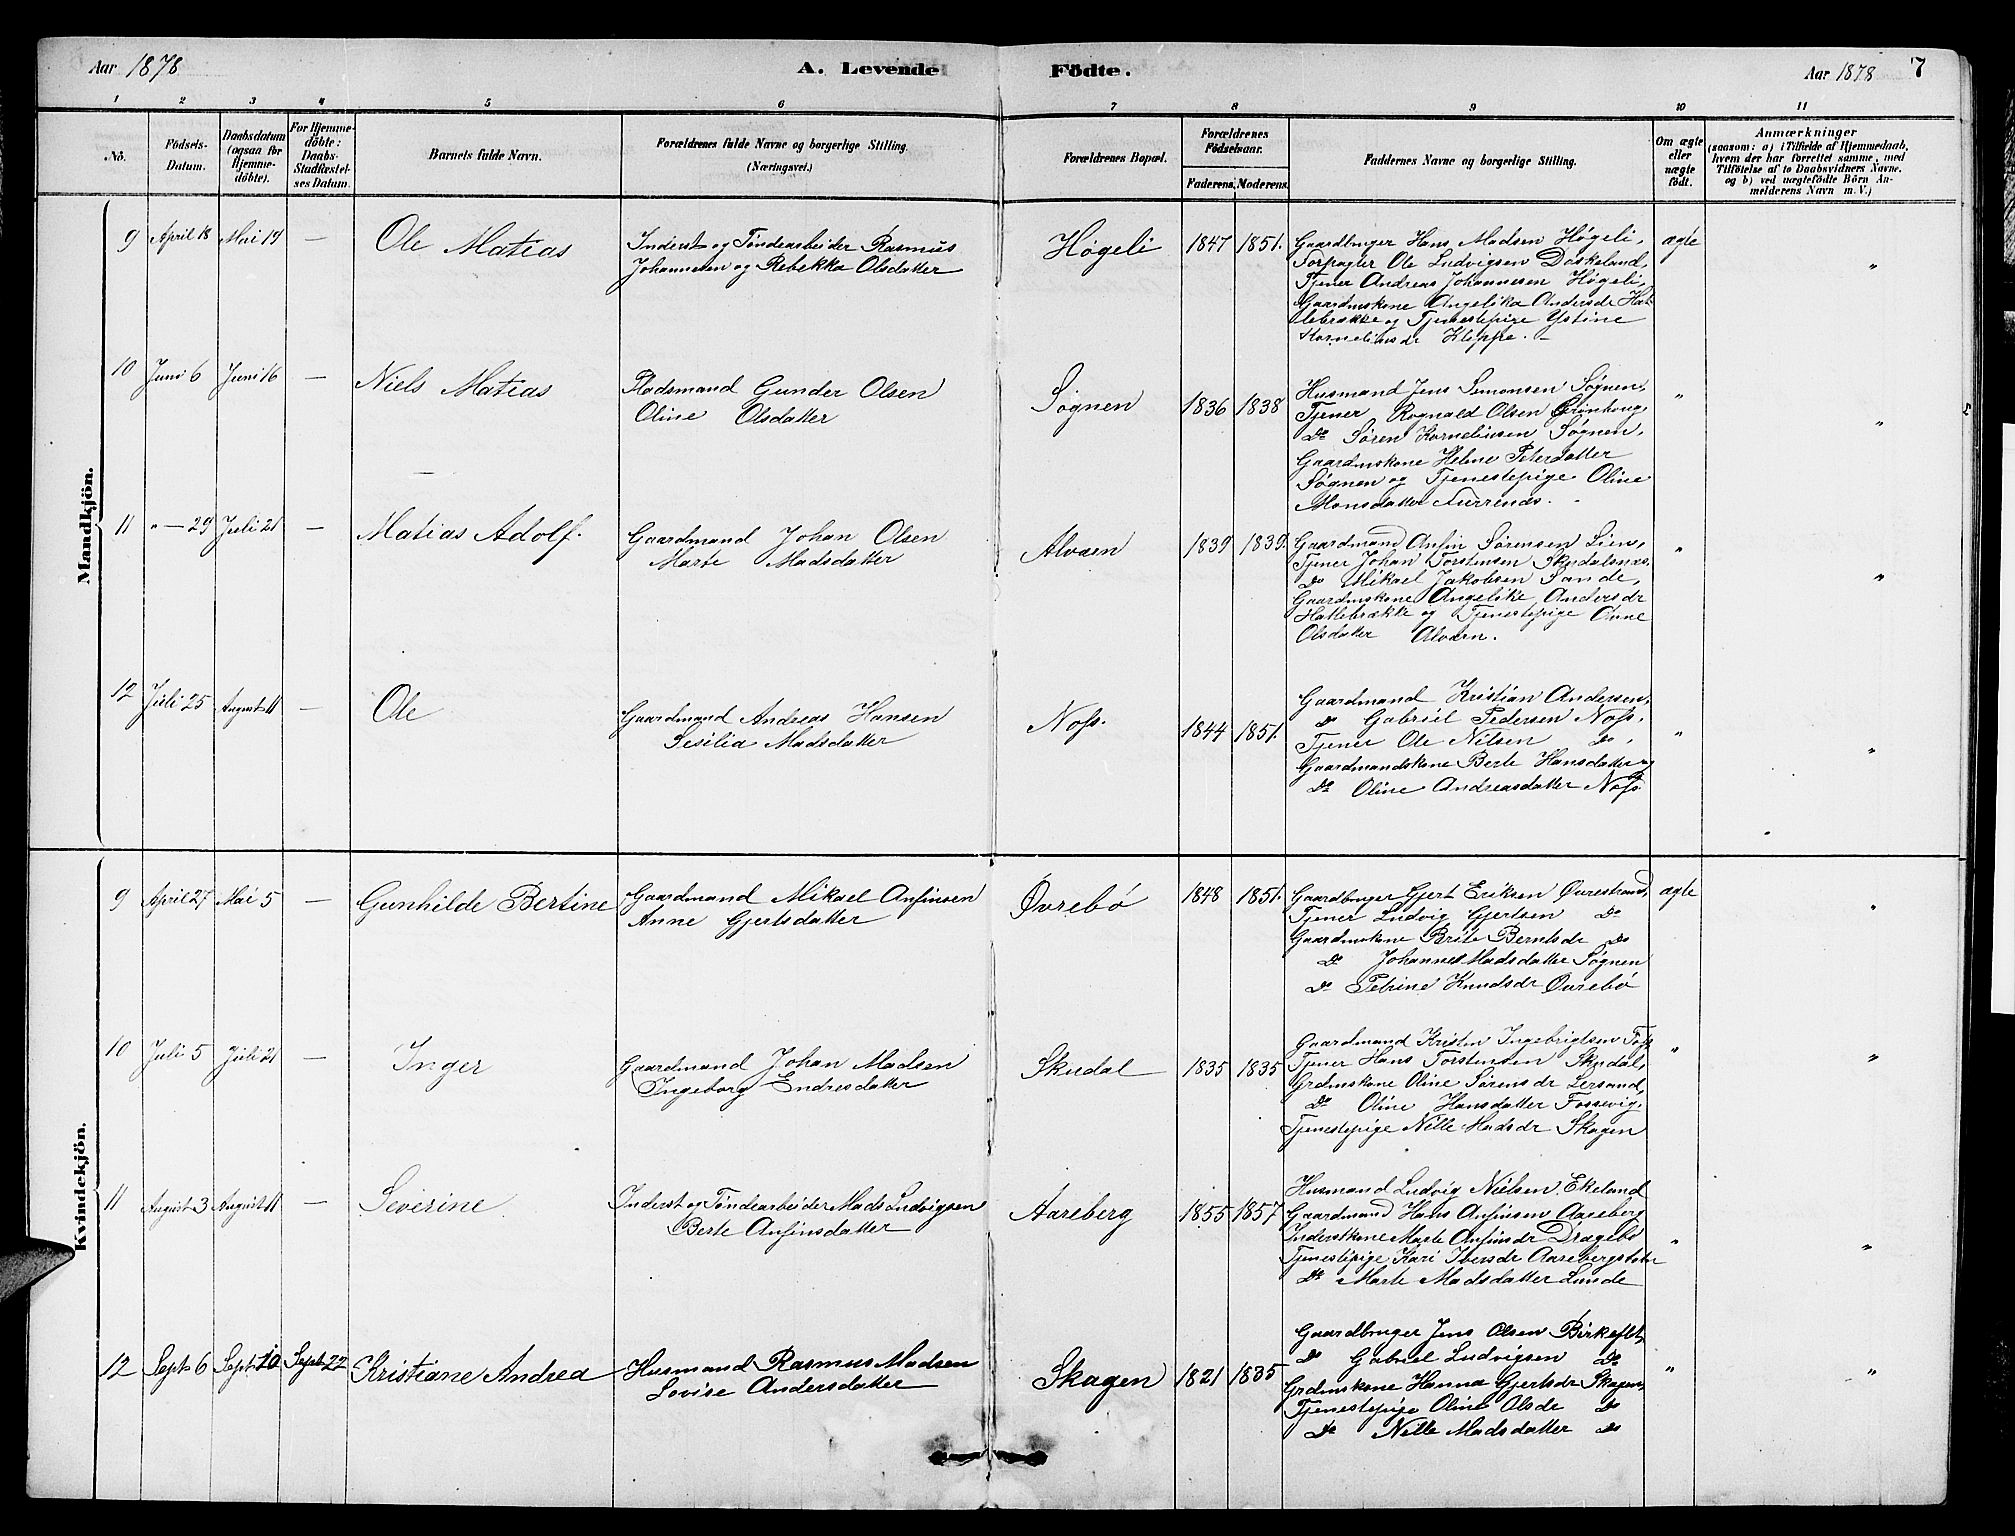 Aar 1878
A. Levende Födte.
Aar 1878 7
1 2 3 4 5 6 7 8 9 10 11
No.
Födsels-Datum.
Daabsdatum (ogsaa for Hjemme-döbte).
For Hjemme-döbte: Daabs-Stadfæstel-ses Datum.
Barnets fulde Navn.
Forældrenes fulde Navne og borgerlige Stilling. (Næringsvei.)
Forældrenes Bopæl.
Forældrenes Födselsaar.
Faderens. Moderens.
Faddernes Navne og borgerlige Stilling.
Om ægte eller uægte födt.
Anmærkninger
(saasom: a) i Tilfælde af Hjemmedaab, hvem der har forrettet samme, med Tilföielse af to Daabsvidners Navne. og b) ved uægtefödte Börn An-melderens Navn m. V.)
Mandkjön.
9 April 18 Mai 19 — Ole Matias
Inderst og Tøndearbeider Rasmus
Johannesen og Rebekka Olsdatter
Høgeli 1847 1851.
Gaardbruger Hans Madsen Høgeli,
Forpagter Ole Ludvigsen Døskeland,
Tjener Andreas Johannesen Høgeli,
Gaardmskone Angelika Andersdr Hat-
lebrække og Tjenestepige Ystine
Kornelius dr Kleppe. —
ægte "
10 Juni 6 Juni 16 — Niels Matias
Pladsmand Gunder Olsen
Oline Olsdatter
Søgnen 1836 1838
Husmand Jens Simonsen Søgnen,
Tjener Rognald Olsen Grønhoug,
Do Søren Korneliusen Søgnen,
Gaardmskone Helene Petersdatter
Søgnen og Tjenestepige Oline
Monsdatter Furrenes.
" "
11 " — 29 Juli 21 — Matias Adolf.
Gaardmand Johan Olsen
Marte Madsdatter
Alværen 1839 1839.
Gaardmand Anfin Sørensen Lien,
Tjener Johan Torstensen Skudalsnes.
Do Mikael Jakobsen Sande,
Gaardmskone Angelike Andersdr
Hatlebrække og Tjenestepige Anne
Olsdatter Alværn.
" "
12 Juli 25 August 11 — Ole
Gaardmand Andreas Hansen
Sesilia Madsdatter
Noss. 1844 1851.
Gaardmand Kristian Andersen,
Do Gabriel Pedersen Noss,
Tjener Ole Nilsen Do,
Gaardmandskone Berte Hansdatter og
Do Oline Andreasdatter Noss
" "
Kvindekjön.
9 April 27 Mai 5 — Gunhilde Bertine
Gaardmand Mikael Anfinsen
Anne Gjertsdatter
Øvrebø 1848 1851.
Gaardbruger Gjert Eriksen Øvrestrand,
Tjener Ludvig Gjertsen Do
Gaardmskone Brite Berntsdr Do
Do Johanne Madsdatter Søgnen
Do Petrine Knudsdr Øvrebø
ægte "
10 Juli 5 Juli 21 — Inger
Gaardmand Johan Madsen
Ingeborg Endresdatter
Skudal 1835 1835
Gaardmand Kristen Ingebrigtsen Foss
Tjener Hans Torstensen Skudal,
Grdmskone Oline Sørensdr Lersand,
Do Oline Hansdatter Fossevig,
Tjenestepige Nille Madsdr Skagen
" "
11 August 3 August 11 — Severine
Inderst og Tøndearbeider Mads Ludvigsen
Berte Anfinsdatter
Aareberg 1855 1857
Husmand Ludvig Nielsen Ekeland
Gaardmand Hans Anfinsen Aareberg
Inderstkone Marte Anfinsdr Dragebø
Tjenestepige Kari Iversdr
Do Marte Madsdatter Lunde
" "
12 Sept 6 Sept 10 Sept 22 Kristiane Andrea
Husmand Rasmus Madsen
Lovise Andersdatter
Skagen 1821 1835
Gaardbruger Jens Olsen Birkeflet,
Do Gabriel Ludvigsen Do
Grdmskone Hanna Gjertsdr Skagen,
Tjenestepige Oline Olsdr Do
Do Nille Madsdatter Do
" "